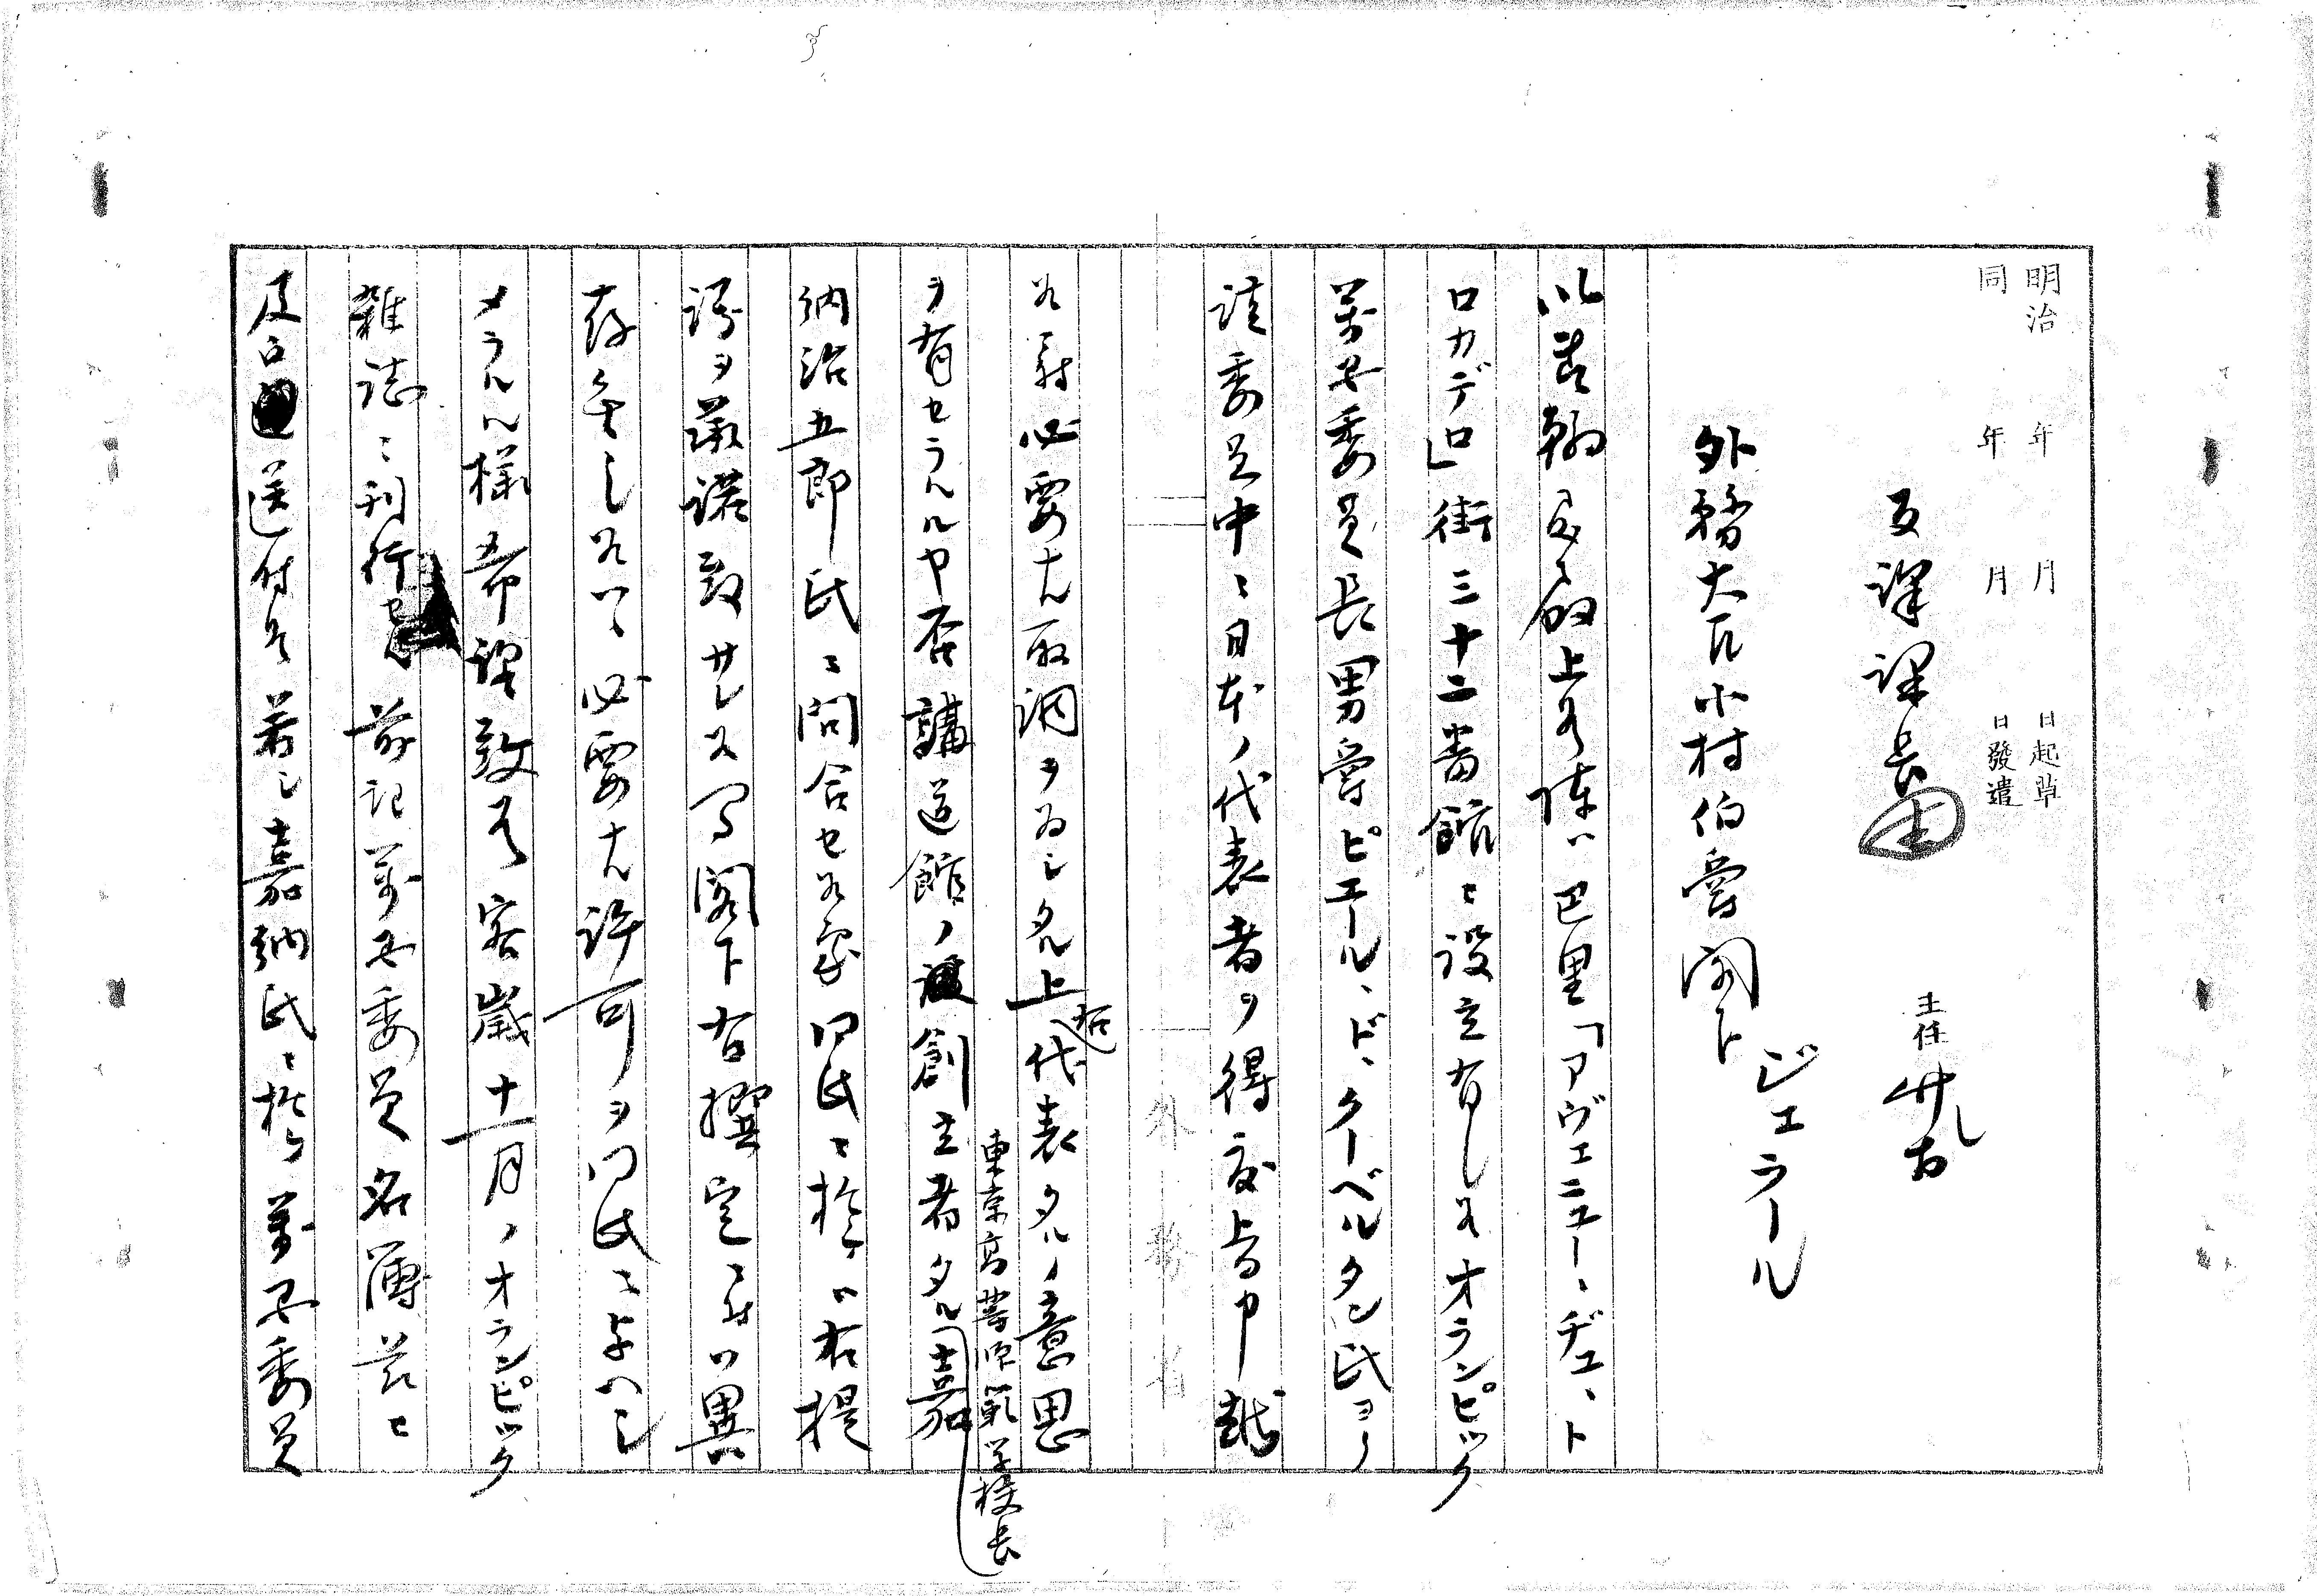 明治 年 月 日起草
同 年 月 日發遣
主任
反譯課長
ジェラール
外務大臣小村伯爵閣下
以書翰致啓上候陳ハ巴里「アヴェニュー、デュ、ト
ロカデロ」街三十二番館ニ設立有之候オランピック
萬國委員長男爵ピエール、ド、クーベルタン氏ヨリ
該委員中ニ日本ノ代表者ヲ得度旨申越
候ニ付必要ナル取調ヲ為シタル上右代表タルノ意思
ヲ有セラルルヤ否講道館ノ創立者タル東京高等師範学校長嘉
納治五郎氏ニ問合セ候處同氏ニ於テハ右提
議ヲ承諾致サレ候間閣下右撰定ニ付ハ異
存無之候ハヽ必要ナル許可ヲ同氏ニ与ヘシ
メラルヽ様希望致候客歳十一月ノオランピック
雜誌ニ刊行セル前記萬國委員名簿茲ニ
及御送付候若シ嘉納氏ニ於テ萬國委員
外務省